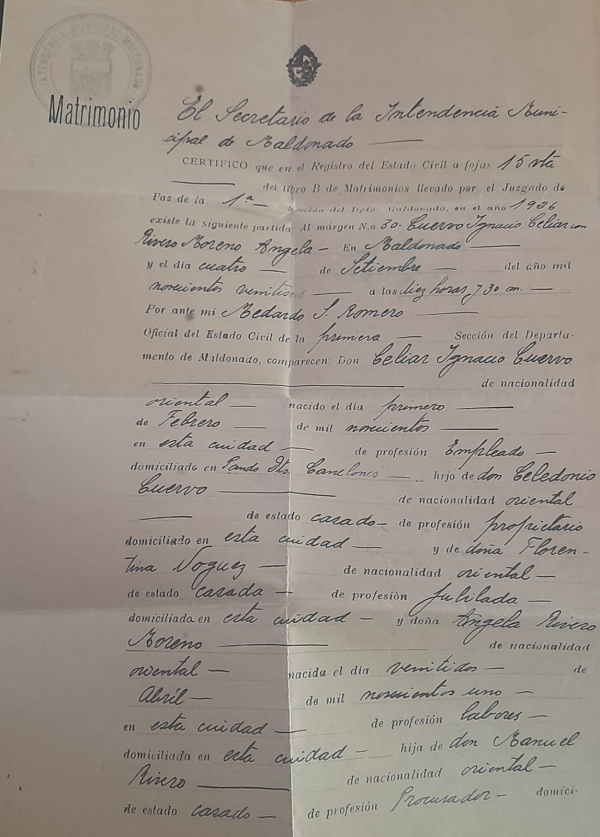 INTENDENCIA MUNICIPAL MALDONADO
Matrimonio
El Secretario de la Intendencia Muni-
cipal de Maldonado
CERTIFICO que en el Registro del Estado Civil a fojas 15 vta
del libro B de Matrimonios llevado por el Juzgado de
Paz de la 1ª Sección del Dpto. Maldonado, en el año 1926
existe la siguiente partida: Al márgen N.o 30- Cuervo Ignacio Celiar con
Rivero Moreno Angela - En Maldonado
y el día cuatro de Setiembre del año mil
novecientos a las diez horas y 30 m.
Por ante mi Medardo S. Romero
Oficial del Estado Civil de la primera Sección del Departa-
mento de Maldonado, comparecen: Don Celiar Ignacio Cuervo
de nacionalidad
oriental nacido el día primero
de Febrero de mil novecientos
en esta ciudad de profesión Empleado
domiciliado en Pando Dto. Canelones hijo de don Celedonio
Cuervo de nacionalidad oriental
de estado casado de profesión propietario
domiciliado en esta ciudad y de doña Floren-
tina Noguez de nacionalidad oriental
de estado casada de profesión Jubilada
domiciliada en esta ciudad y doña Angela Rivero
Moreno de nacionalidad
oriental nacida el día veintidos de
Abril de mil novecientos uno
en esta ciudad de profesión labores
domiciliada en esta ciudad hija de don Manuel
Rivero de nacionalidad oriental
de estado casado de profesión Procurador domici-